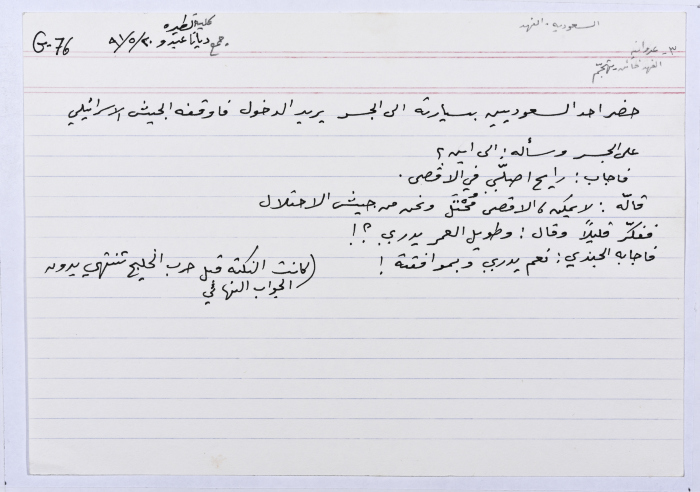 السعودية - الفهد
٣ - عدوانية
الفهد خائن يتهجّم
كلية الطيره
جمع ديانا عبدو ٢٠/٥/٩١
G-76
حضر احد السعوديين بسيارته الى الجسر يريد الدخول فاوقفه الجيش الاسرائيلي
على الجسر وسأله : الى اين ؟
فاجاب : رايح اصلّي في الاقصى .
قاله : لا يمكن ، الاقصى مُحْتَل ونحن من جيش الاحتلال
ففكّر قليلاً وقال : وطويل العمر يدري ؟!
فاجابه الجندي : نعم يدري وبموافقته !
(كانت النكتة قبل حرب الخليج تنتهي بدون
الجواب النهائي